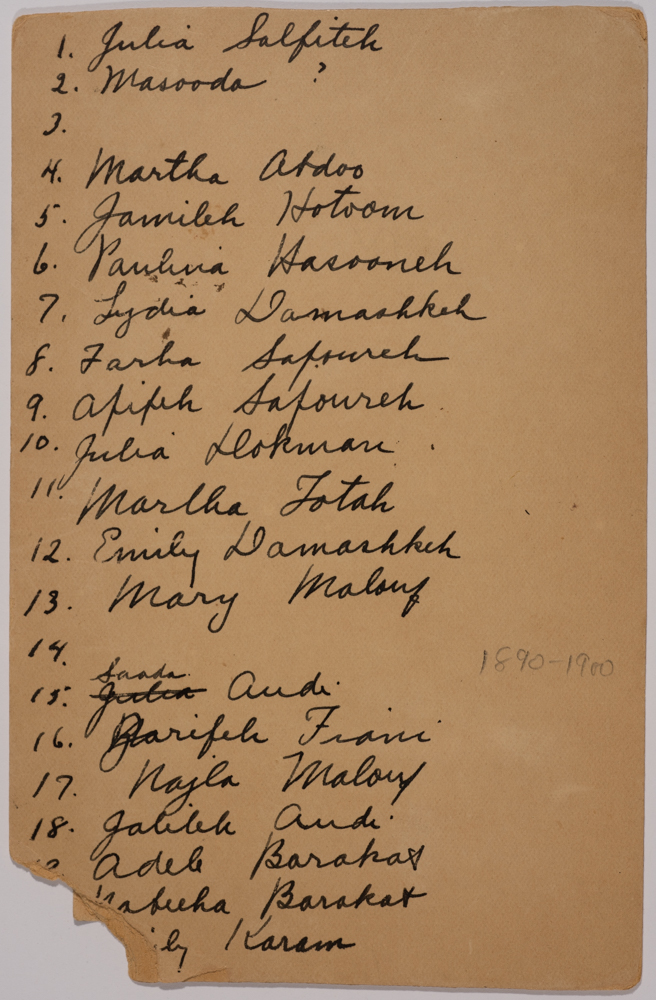 1. Julia Salfiteh
2. Masooda ?
3.
4. Martha Abdoo
5. Jamileh Hotoom
6. Paulina Hasooneh
7. Lydia Damashkeh
8. Farha Safoureh
9. Afifeh Safoureh
10. Julia Llokman
11. Martha Totah
12. Emily Damashkeh
13. Mary Malouf
14.
1890-1900
Saada
15. Julia Audi
16. Zarifeh Fiani
17. Najla Malouf
18. Jalileh Audi
Adele Barakat
Nabeeha Barakat
ily Karam